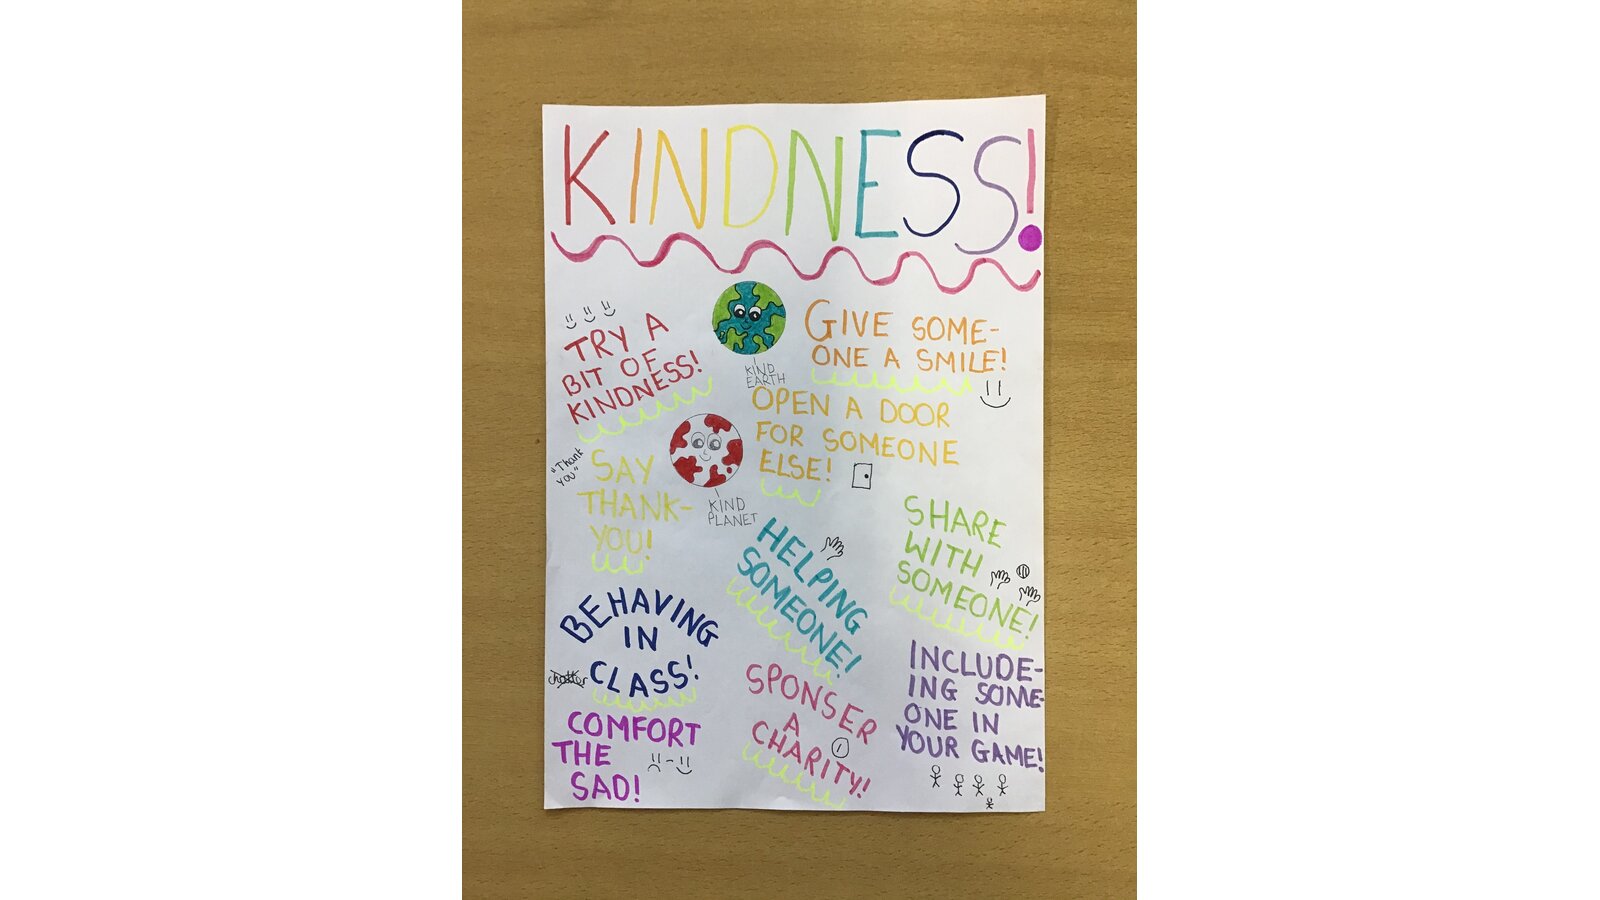 KINDNESS!
TRY A
BIT OF
KINDNESS!
KIND
EARTH
GIVE SOME-
ONE A SMILE!
OPEN A DOOR
FOR SOMEONE
ELSE!
"Thank
you"
SAY
THANK-
YOU!
KIND
PLANET
HELPING
SOMEONE!
SHARE
WITH
SOMEONE!
BEHAVING
IN
CLASS!
chatter
SPONSER
A
CHARITY!
1
INCLUDE-
ING SOME-
ONE IN
YOUR GAME!
COMFORT
THE
SAD!